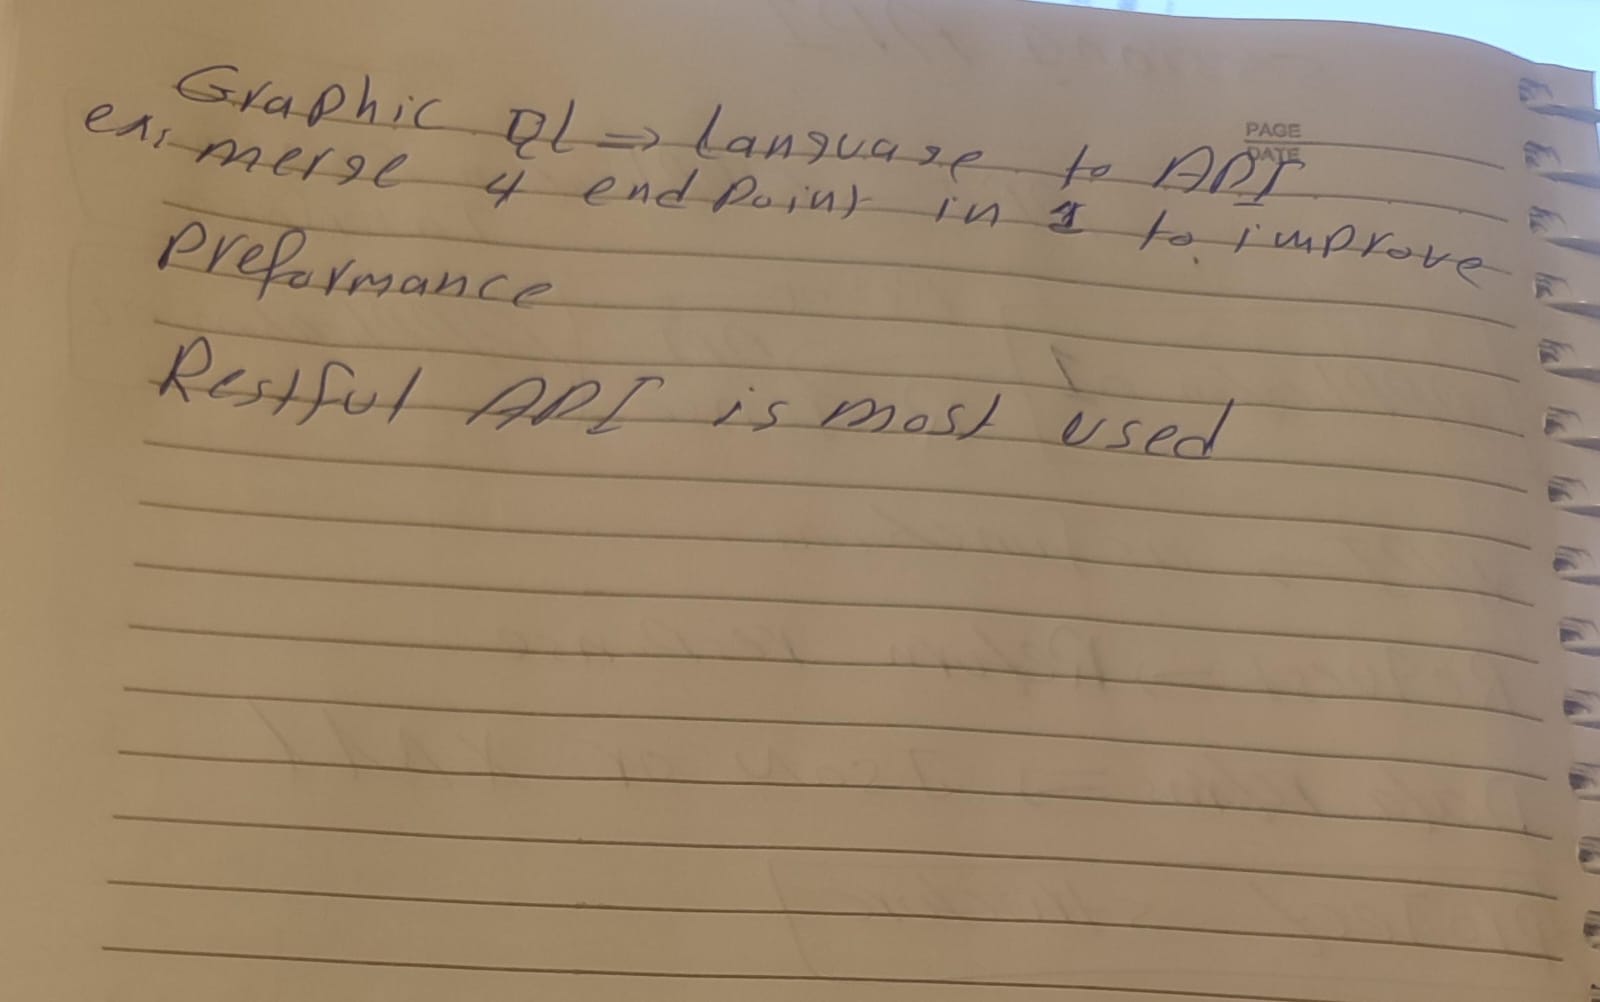 PAGE
DATE
Graphic QL => Language to API
ex: merge 4 end Point in 1 to improve
Preformance
Restful API is most used